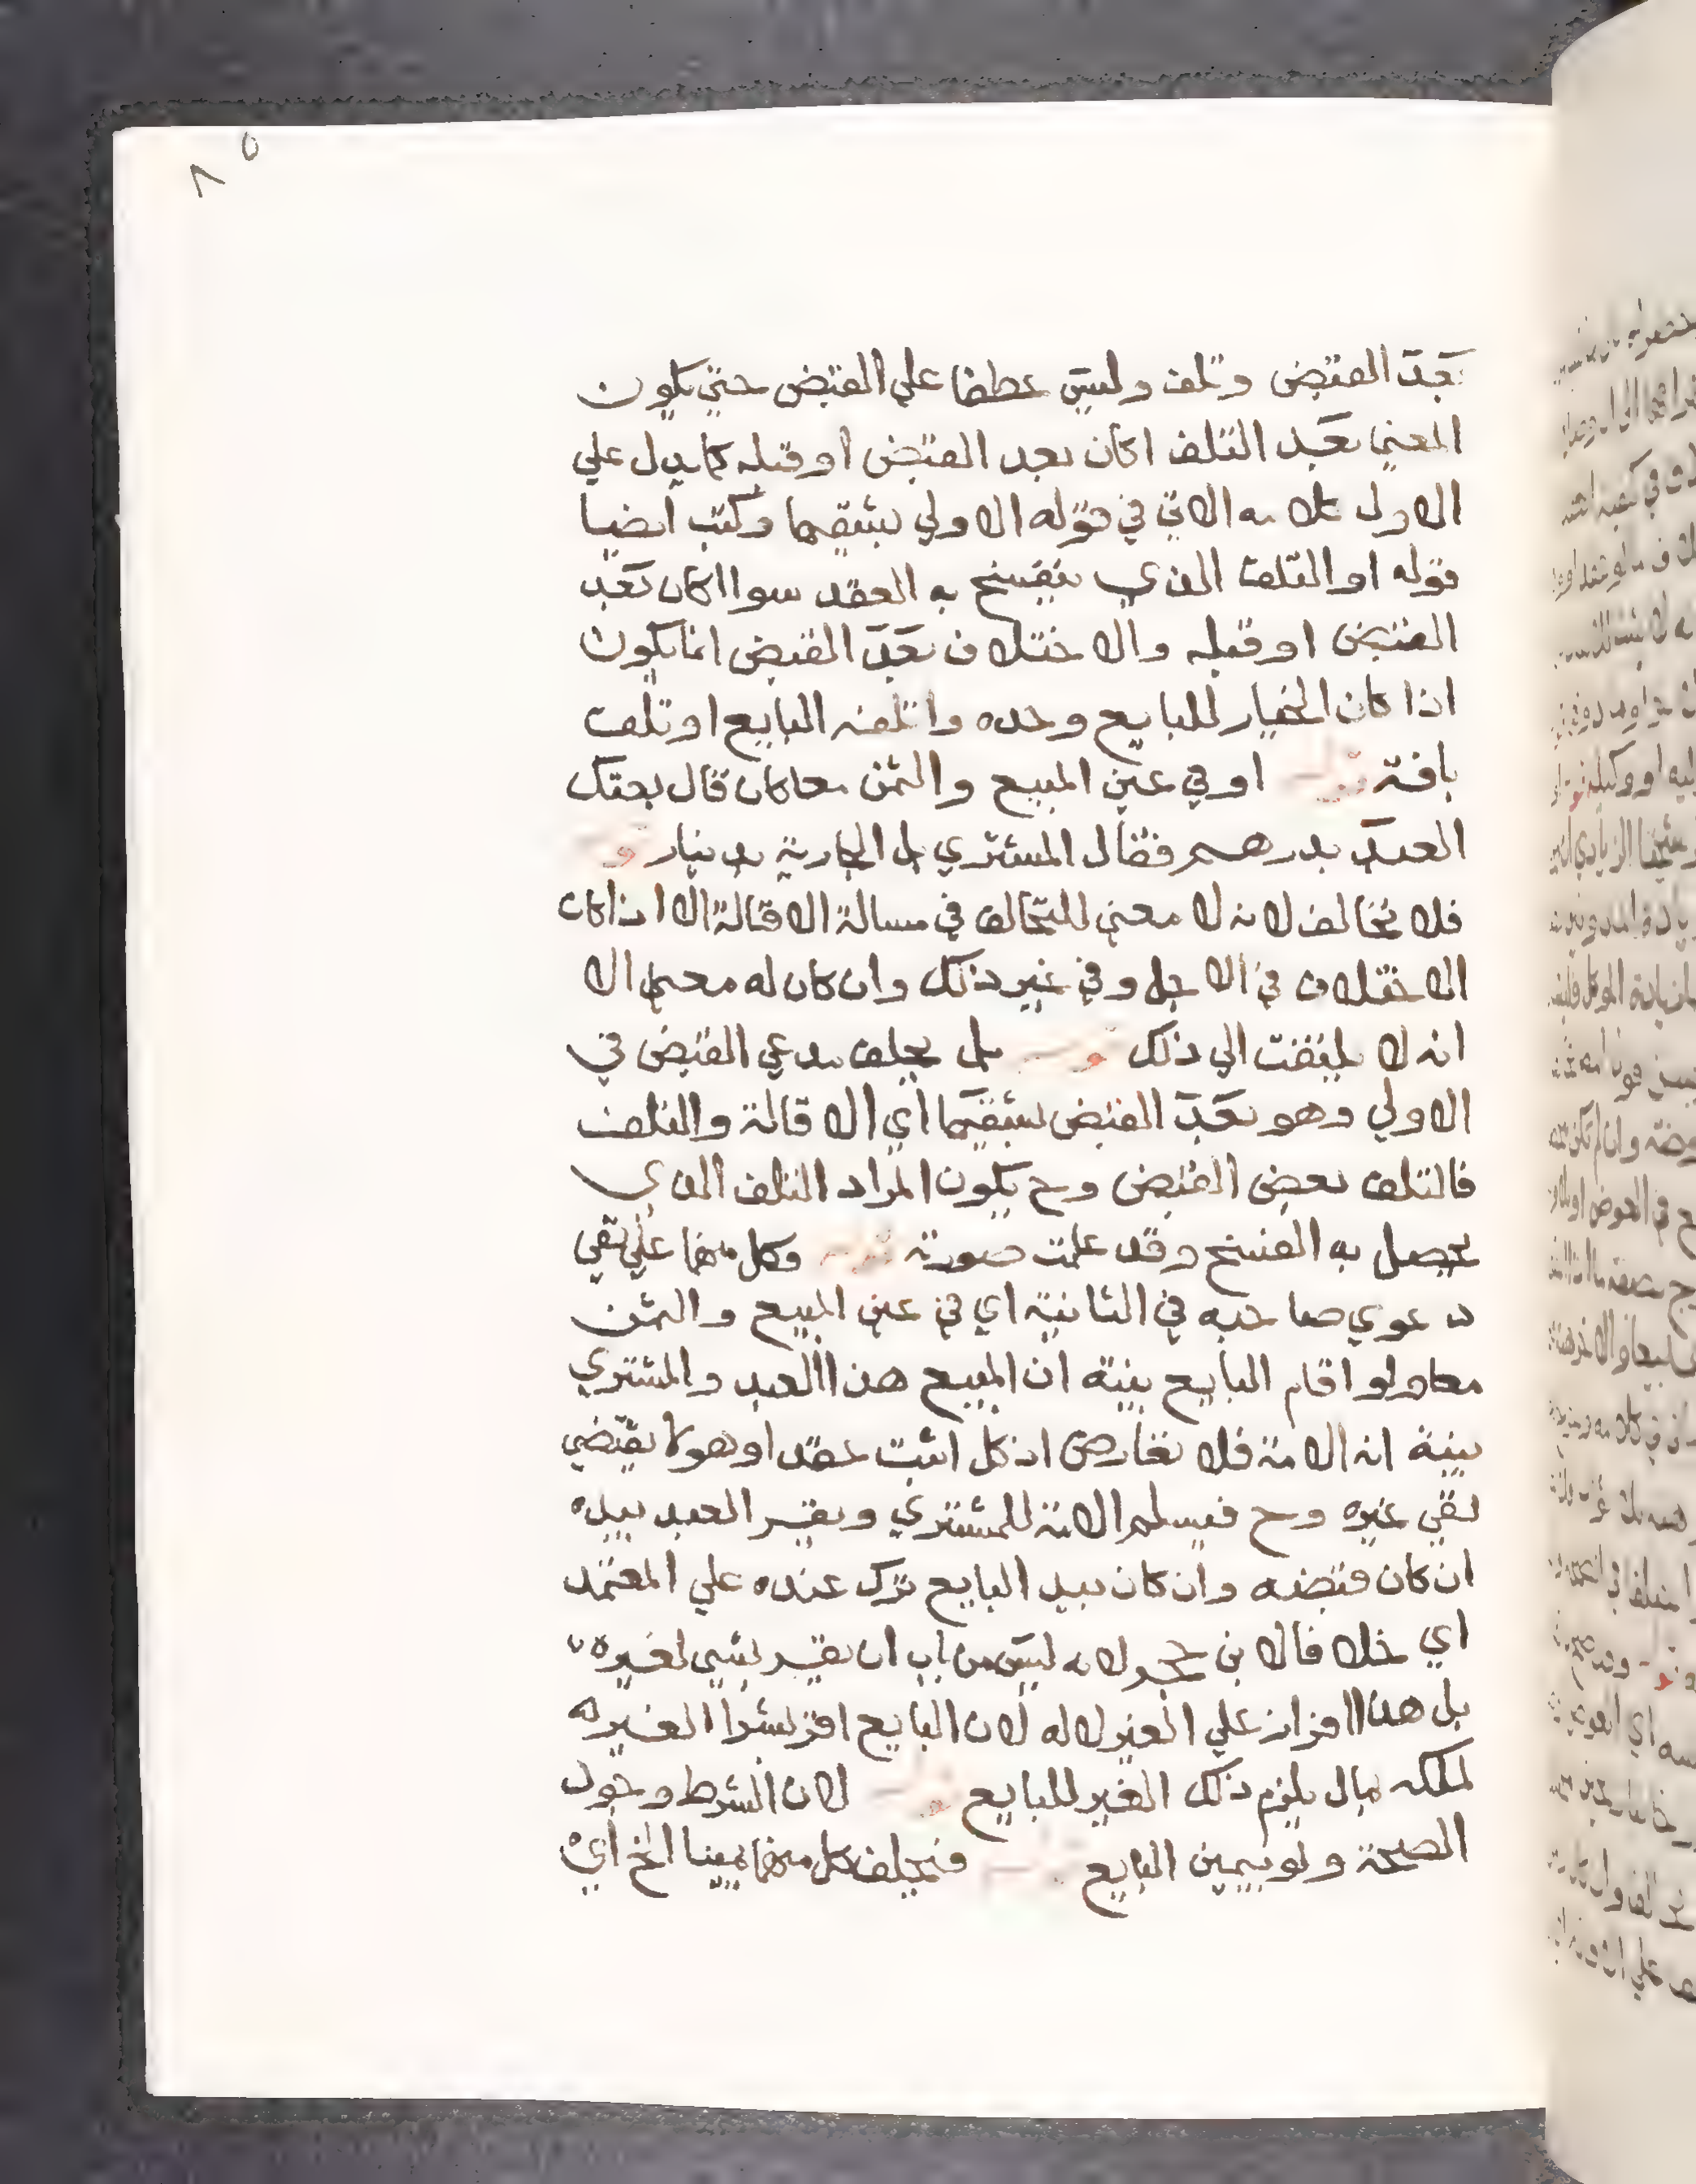 ٨٥
بعد القبض وتلف وليس عطفا علي القبض حتي يكون
المعني بعد التلف اكان بعد القبض او قبله كما يدل علي
الاول كلامه الاتي في قوله الاولي بشقيها وكتب ايضا
قوله او التلف الذي ينفسخ به العقد سوا اكان بعد
القبض او قبله والاختلاف بعد القبض انما يكون
اذا كان الخيار للبايع وحده واتلفه البايع او تلف
بافة قوله او في عين المبيع والثمن معا كان قال بعتك
العبد بدرهم فقال المشتري بل الجارية بدينار
فلا تحالف لانه لا معني للتحالف في مسالة الاقالة الا اذا كان
الاختلاف في الاجل وفي غير ذلك وان كان له معني الا
انه لا يلتفت الي ذلك بل يحلف مدعي القبض في
الاولي وهو بعد القبض بشقيها اي الاقالة والتلف
فالتلف بعض القبض وح يكون المراد التلف الذي
يحصل به الفسخ وقد علمت صورته قوله وكل منهما علي نفي
دعوي صاحبه في الثانية اي في عين المبيع والثمن
معا ولو اقام البايع بينة ان المبيع هذا العبد والمشتري
بينة انه الامة فلا تعارض اذ كل اثبت عقدا وهو لا يقتضي
نفي غيره وح فيسلم الامة للمشتري ويقر العبد بيده
ان كان قبضه وان كان بيد البايع ترك عنده علي المعتمد
اي خلافا لابن حجر لانه ليس من باب ان يقر بشي لغيره
بل هذا اقرار علي الغير لا له لان البايع اقر بشرا الغير له
لملكه بمال يلزم ذلك الغير للبايع لان الشرط وجود
الصحة ولو بيمين البايع فيحلف كل منهما يمينا الخ اي